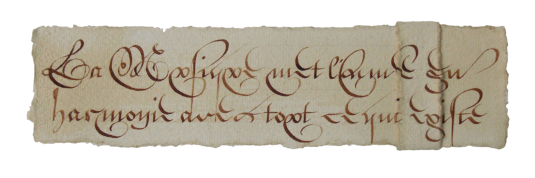 La Musique met l'ame en
harmonie avec tout ce qui existe